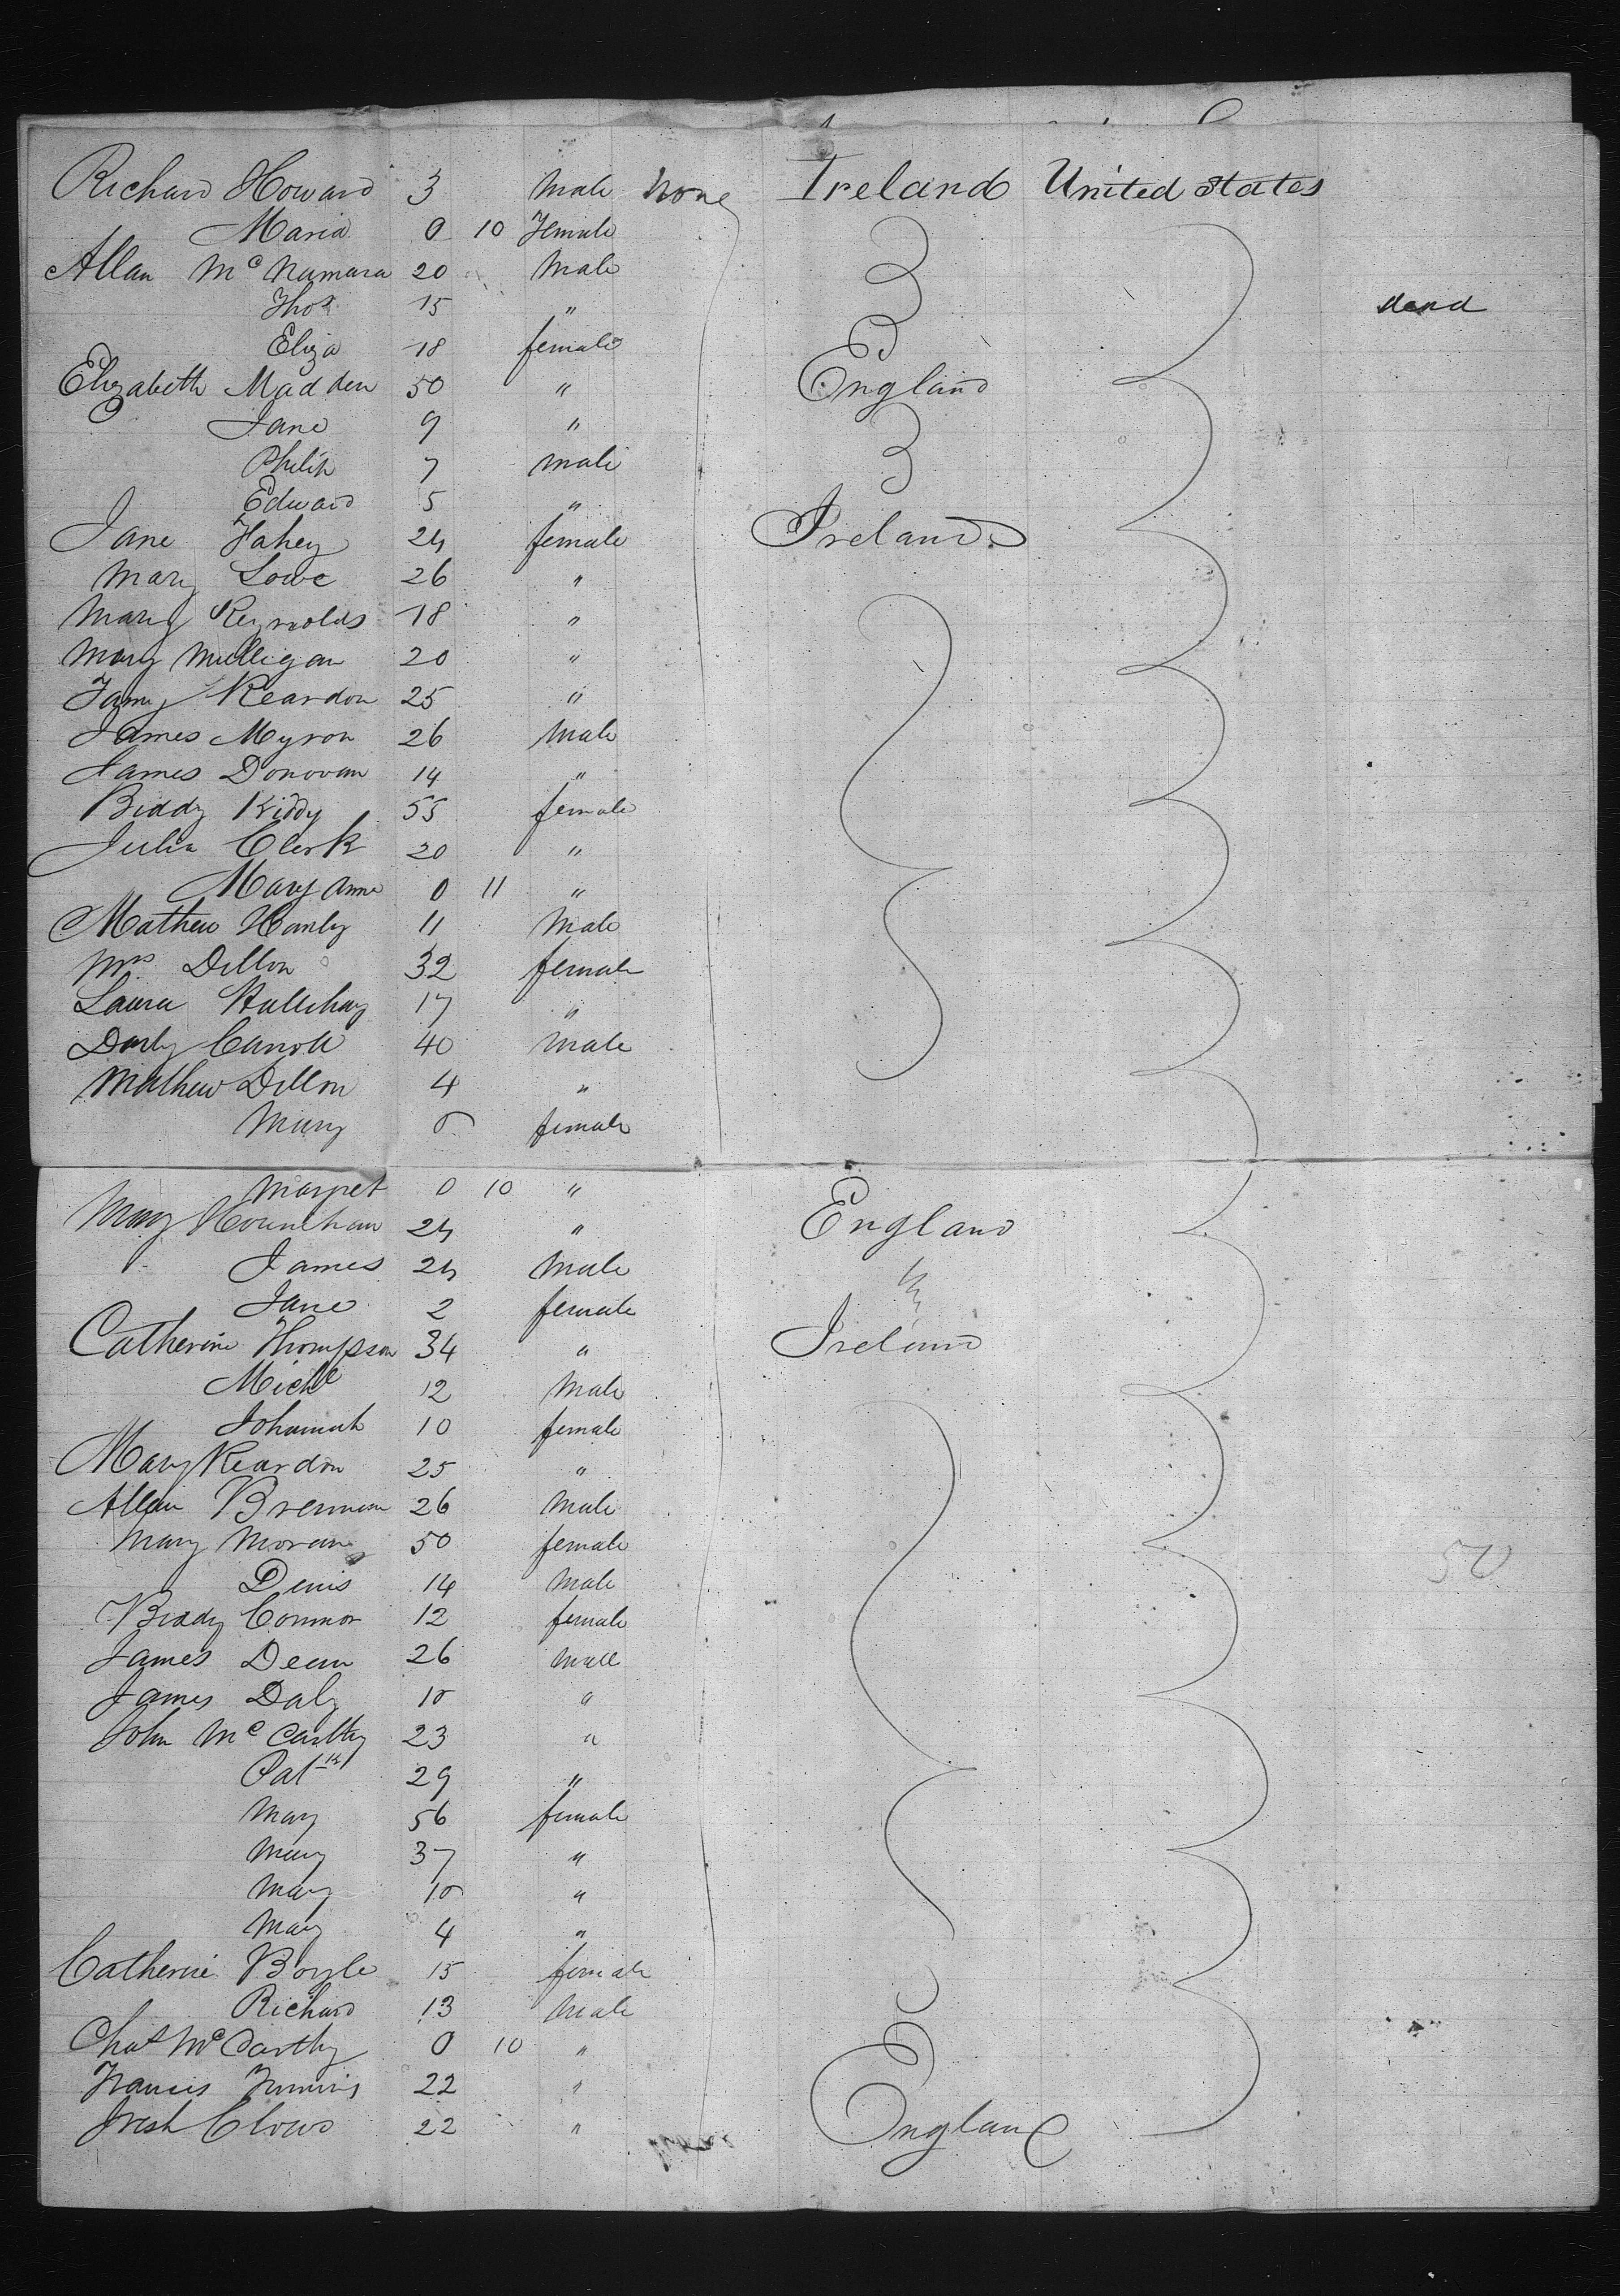 Richard Howard 3 Male None Ireland United States
Maria 0 10 Female
Allan Mc Namara 20 Male
Thos 15 " dead
Eliza 18 female
Elizabeth Madden 50 " England
Jane 9 "
Philip 7 male
Edward 5 "
Jane Fahey 24 female Ireland
Mary Lowe 26 "
Mary Reynolds 18 "
Mary Mulligan 20 "
Fanny Reardon 25 "
James Myron 26 Male
James Donovan 14 "
Biddy Kiddy 55 female
Julia Clerk 20 "
Mary Anne 0 11 "
Mathew Hanly 11 Male
Mrs Dillon 32 female
Laura 17 "
Darly Carroll 40 male
Mathew Dillon 4 "
Mary female
Margret 0 10 "
Mary Hounihan 24 " England
James 24 Male
Jane 2 female
Catherine Thompson 34 " Ireland
Michl 12 Male
Johannah 10 female
Mary Reardon 25 "
Allan Brennan 26 Male
Mary Moran 50 female
Denis 14 Male 50
Biddy Connor 12 female
James Dean 26 male
James Daly 10 "
John Mc Carthy 23 "
Patk 29 "
Mary 56 female
Mary 37 "
Mary 10 "
Mary 4 "
Catherine Boyle 15 female
Richard 13 Male
Chas McCarthy 0 10 "
Francis 22 "
Clows 22 " England